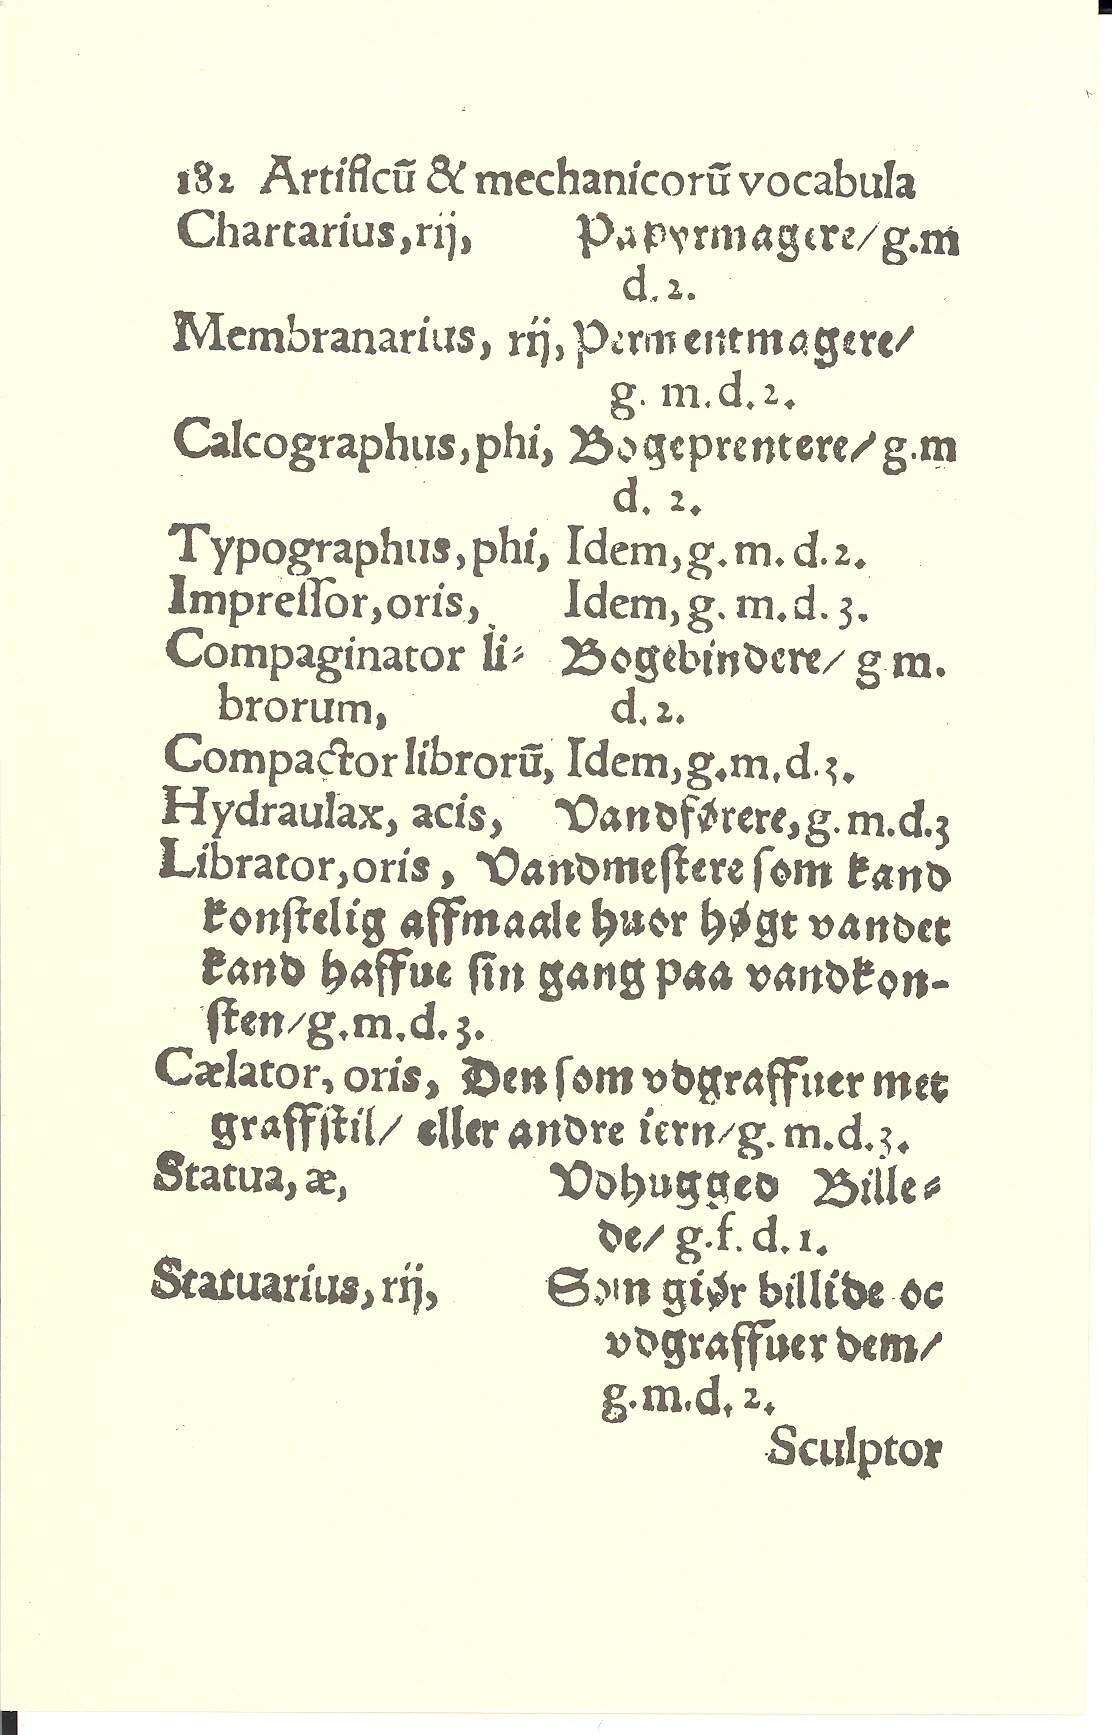 182 Artificū & mechanicorū vocabula
Chartarius, rij, Papyrmagere/ g.m
d. 2.
Membranarius, rij, Permentmagere/
g. m. d. 2.
Calcographus, phi, Bogeprentere/ g.m
d. 2.
Typographus, phi, Idem, g. m. d. 2.
Impreſſor, oris, Idem, g. m. d. 3.
Compaginator li⸗ Bogebindere/ g m.
brorum, d. 2.
Compactor librorū, Idem, g. m. d. 3.
Hydraulax, acis, Vandførere, g. m. d. 3
Librator, oris, Vandmeſtere ſom kand
konſtelig affmaale huor høgt vandet
kand haffue ſin gang paa vandkon-
ſten/ g. m. d. 3.
Cælator, oris, Den ſom vdgraffuer met
graffſtil/ eller andre iern/ g. m. d. 3.
Statua, æ, Vdhugged Bille⸗
de/ g. f. d. 1.
Statuarius, rij, Som giør billide oc
vdgraffuer dem/
g. m. d. 2.
Sculptor